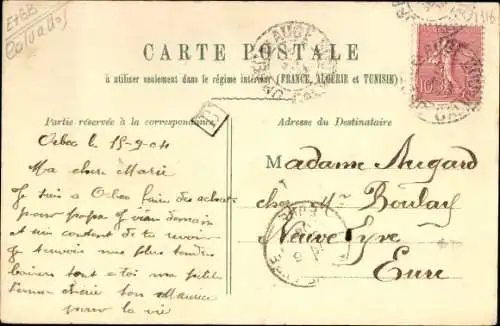 CARTE POSTALE
à utiliser seulement dans le régime intérieur (FRANCE, ALGÉRIE et TUNISIE)
Partie réservée à la correspondance
Adresse du Destinataire
Orbec le 15-9-04
Ma chère Marie
Je suis à Orbec faire des achats
pour demain
et suis content de te revoir
Je t'envoie mes plus tendres
baisers tout à toi ma petite
chérie ton Maurice
pour la vie
Madame Augard
chez Mr Boulay
Neuve Lyre
Eure
10